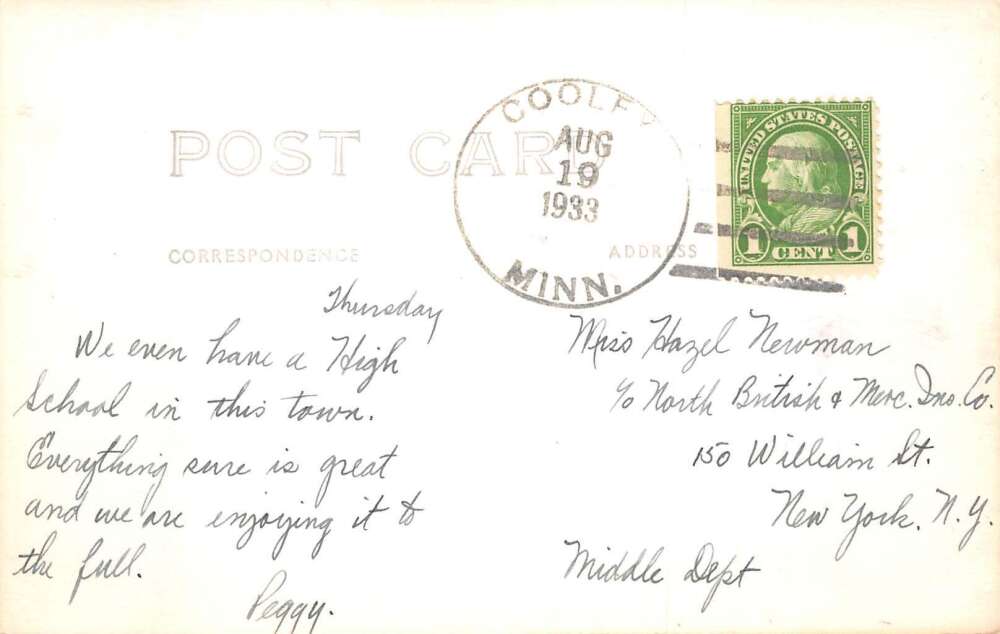 POST CARD
COOLEY
AUG
19
1933
MINN.
UNITED STATES POSTAGE
1 CENT 1
CORRESPONDENCE
ADDRESS
Thursday
We even have a High
School in this town.
Everything sure is great
and we are enjoying it to
the full.
Peggy.
Miss Hazel Newman
c/o North British & Merc. Ins. Co.
150 William St.
New York. N.Y.
Middle Dept